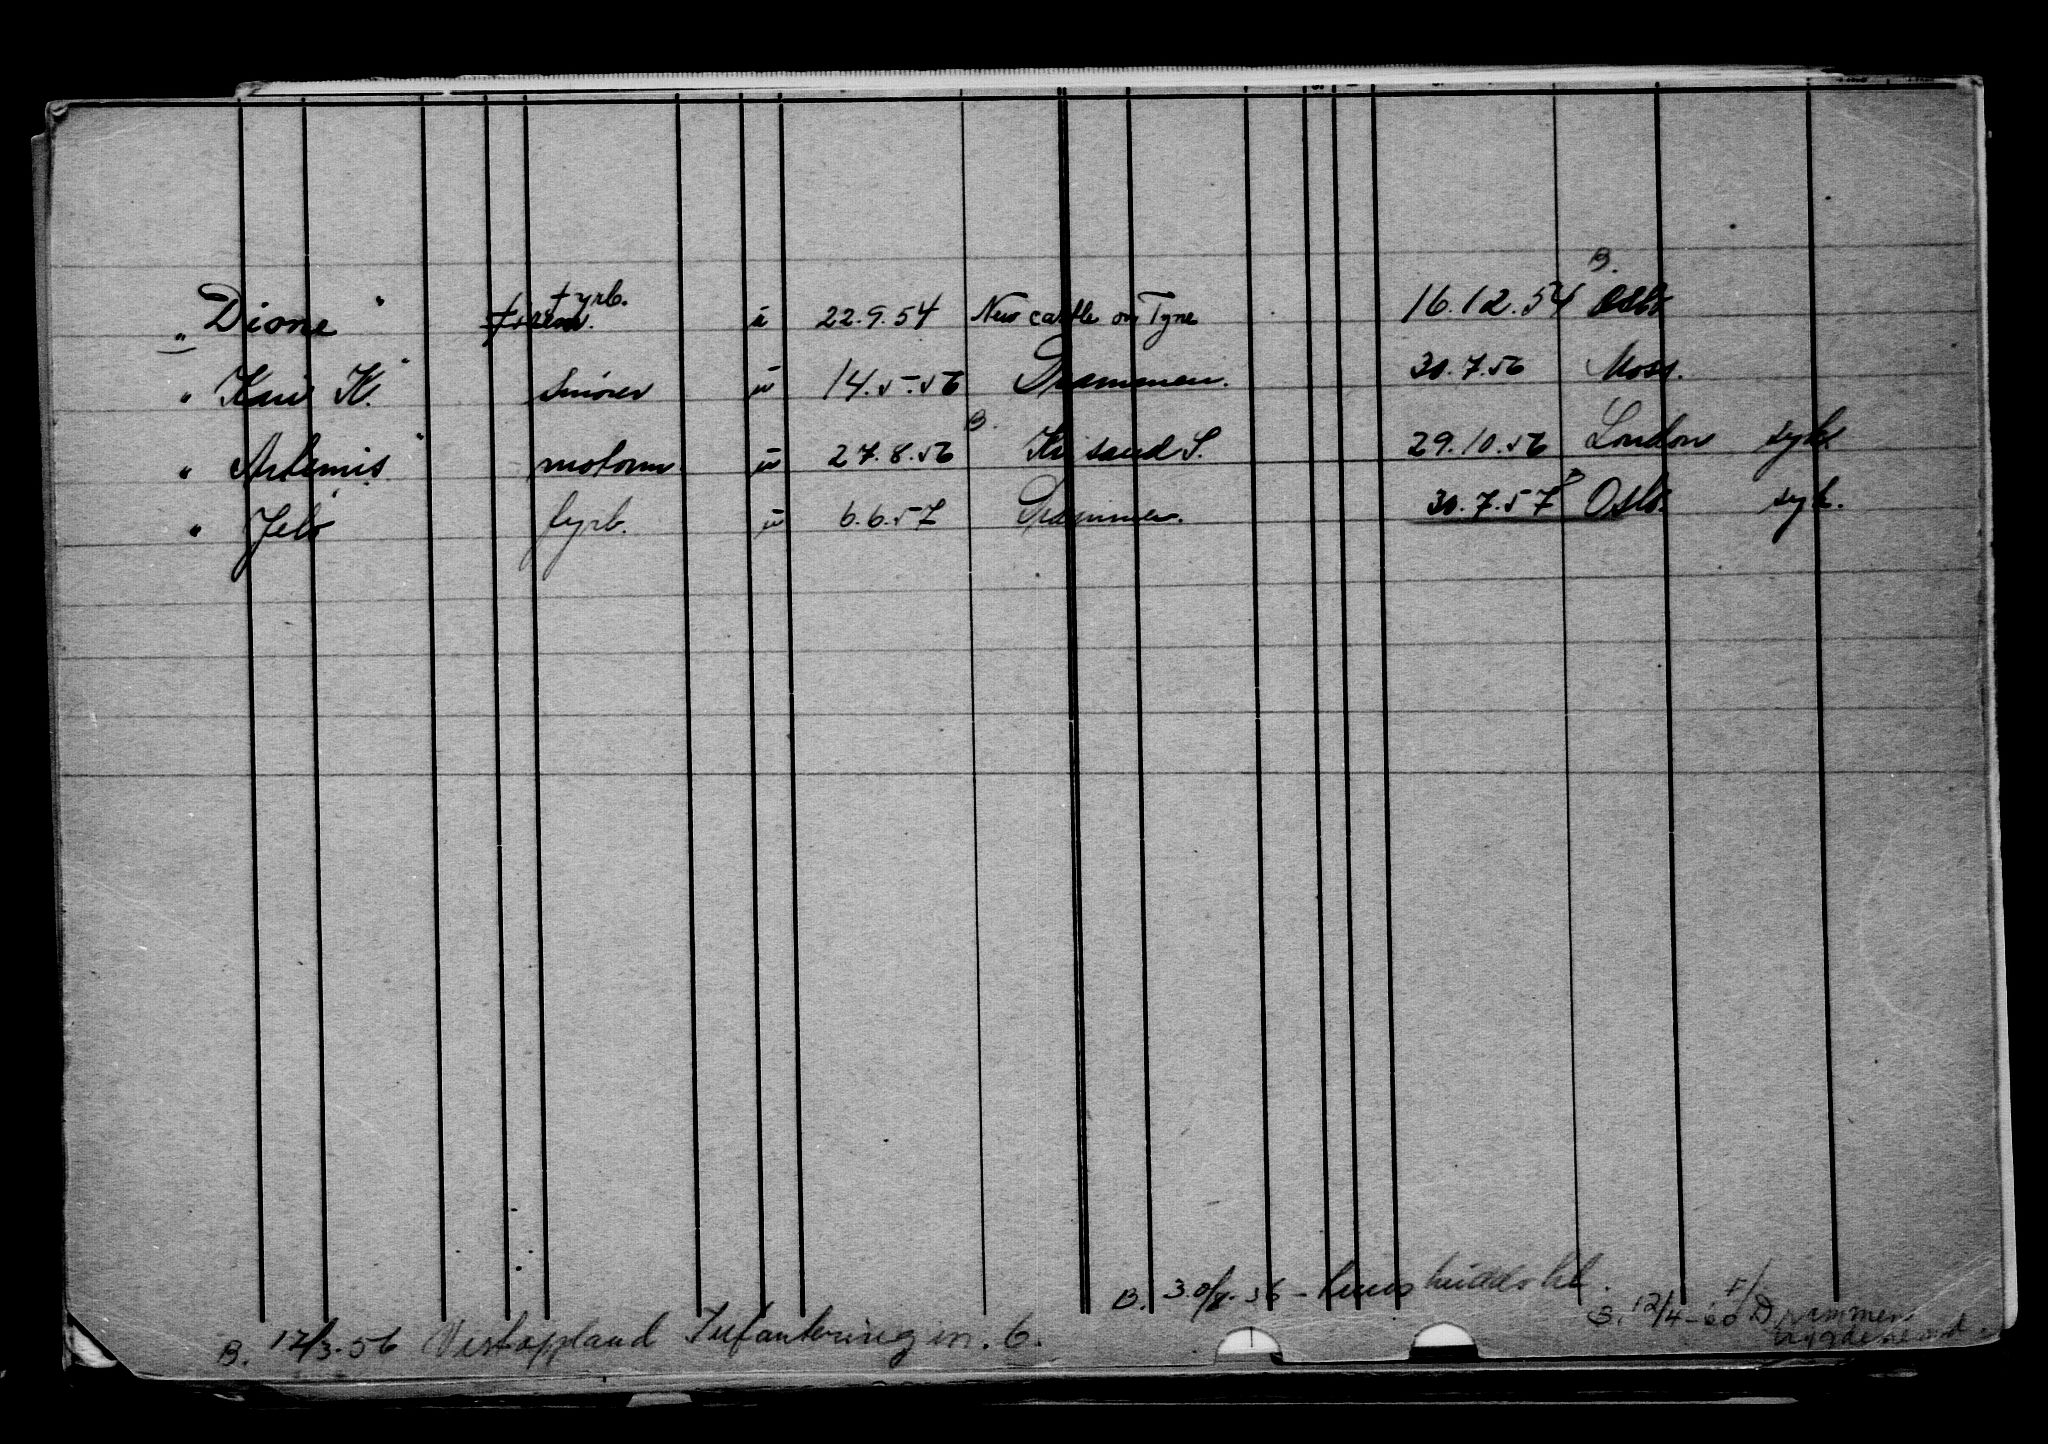 B.
„ Dione " fyrb. ü 22.9.54 New castle on Tyne 16.12.54 Oslo
„ Kari K." Smører ü 14.5.56 Drammen. 30.7.56 Moss.
B.
„ Artemis " motorm. ü 27.8.56 Kr sand S. 29.10.56 London syk.
„ Jelø " fyrb. ü 6.6.57 Drammen. 30.7.57 Oslo. syk.
B. 30/7-56 -
B. 12/4-60 Drammen
B. 12/3-56 Vestoppland Infantering in. 6.